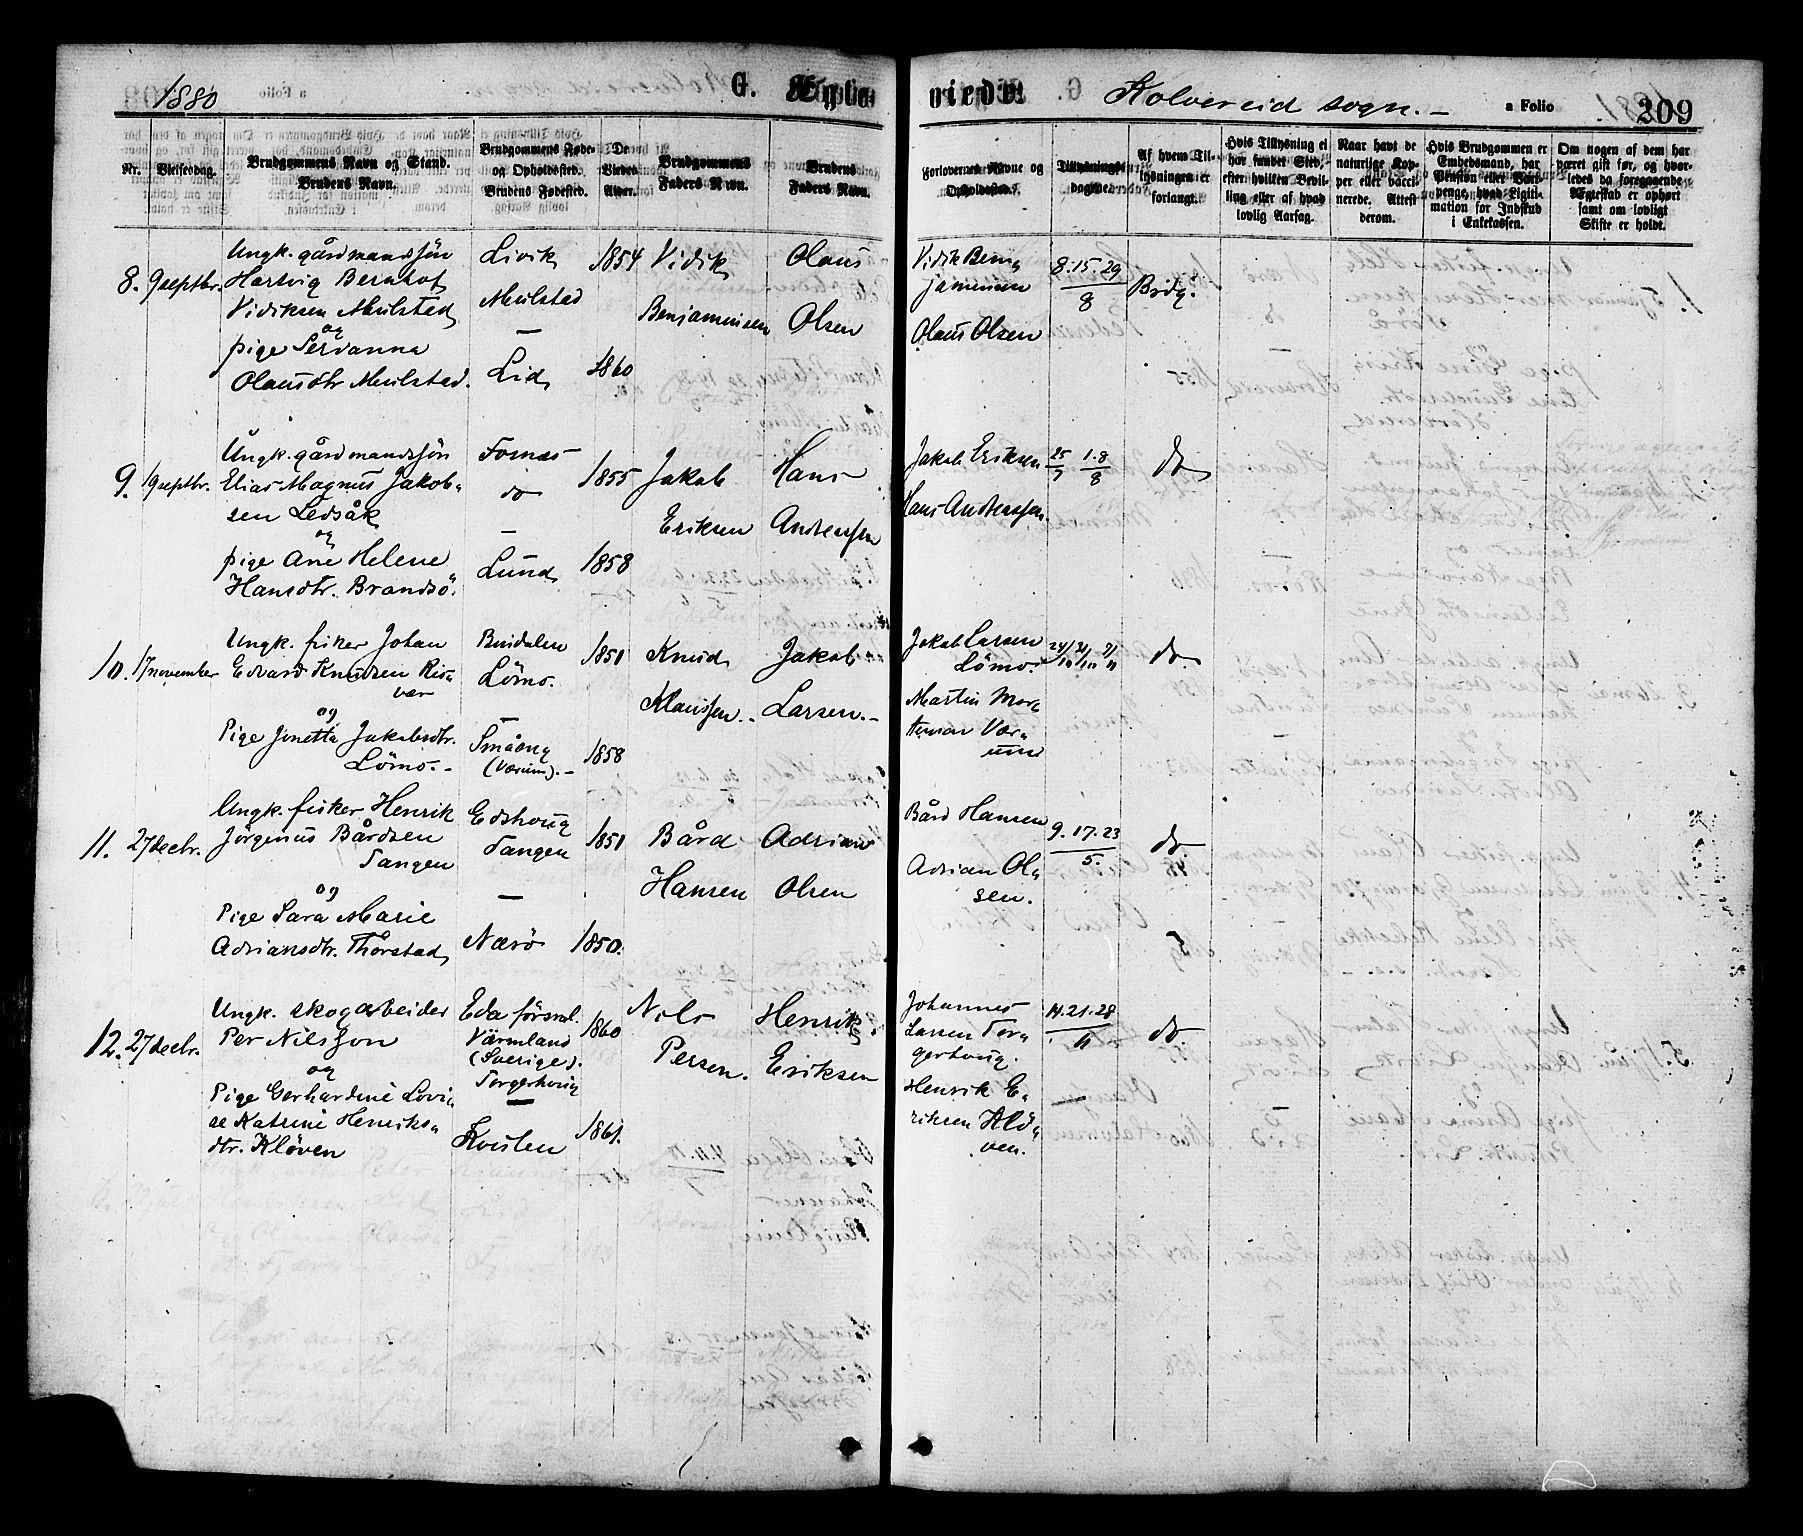 1880
G. Ægte
viede. Kolvereid sogn. - a Folio 209
Nr.
Vielsesdag.
Brudgommens Navn og Stand.
Brudens Navn.
Brudgommens Føde-
og Opholdssted.
Brudens Fødested.
De
Viedes
Alder.
Brudgommens
Faders Navn.
Brudens
Faders Navn.
Forlovernes Navne og
Opholdssted.
Tillysnings-
dagene.
Af hvem Til-
lysningen er
forlangt.
Hvis Tillysning ei
har fundet Sted,
efter hvilken Bevil-
ling eller af hvad
lovlig Aarsag.
Naar havt de
naturlige Kop-
per eller vacci-
nerede. Attest
derom.
Hvis Brudgommen er
Embedsmand, har
Pension eller Vart-
penge, hvad Legiti-
mation for Indskud
i Enkekassen.
Om nogen af dem har
været gift før, og hvor-
ledes da foregaaende
Ægteskab er ophørt
samt om lovligt
Skifte er holdt.
8. 9septbr.
Ungk. gårdmandssön
Hartvig Bernhof
Vidiksen Meulstad
og
pige Servanna
Olausdtr Meulstad.
Livik
Meulstad
—
Lid
1854
1860
Vidik
Benjaminsen
Olaus
Olsen
Vidik Benj
jaminsen
Olaus Olsen
8. 15. 29
8
Brdg.
9. 19septbr.
Ungk. gårdmandssön
Elias Magnus Jakob-
sen Ledsåk
og
pige Ane Helene
Hansdtr. Brandsö.
Fornæs
do
—
Lund
1855
1858
Jakob
Eriksen
Hans
Andersen
Jakob Eriksen
Hans Anderssen.
25/7 1.8/8
do
10. 17november
Ungk. fisker Johan
Edvard Knudsen Ris-
vær
og
Pige Jonetta Jakobsdtr.
Lömo. -
Bindalen
Lömo.
—
Småong
(Værum). -
1851
1858
Knud
Klaussen. -
Jakob
Larsen. -
Jakob Larsen
Lömo.
Martin Mor-
tensen Vær-
um
24/10 31/10 7/11
do.
11. 27decbr.
Ungk. fisker Henrik
Jörginus Bårdsen
Tangen
og
Pige Sara Marie
Adriansdtr. Thorstad
Edshoug
Tangen
—
Nærö
1851
1850.
Bård
Hansen
Adrian
Olsen
Bård Hansen
Adrian Ol-
sen.
9. 17. 23
5.
do.
12. 27decbr.
Ungk. skogarbeider
Per Nilsson
og
Pige Gerhardine Lovi-
se Katrine Henriks-
dtr. Klöven
Eda försml.
Värmland
(Sverige).
Torgerhoug
—
Kvisten
1860
1861.
Nils
Persen.
Henrik
Eriksen
Johannes
Larsen Tor-
gerhoug.
Henrik E-
riksen Klö-
ven.
14. 21. 28
11
do.